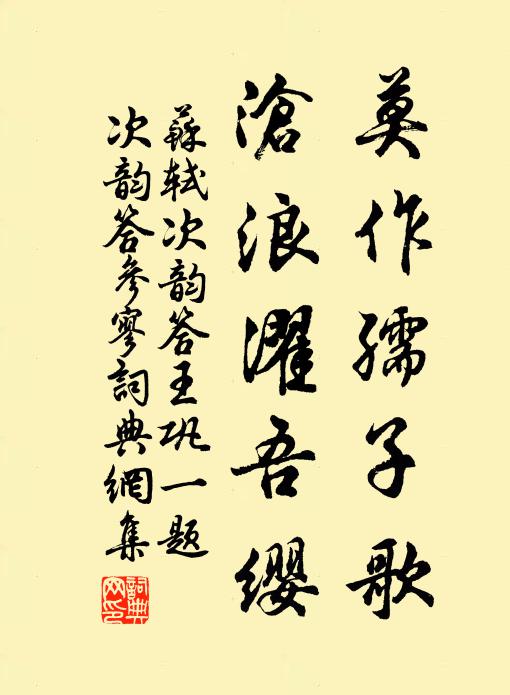 莫作孺子歌
滄浪濯吾缨
蘇轼次韵答王巩一题
次韵答參寥詞典網集
詞典